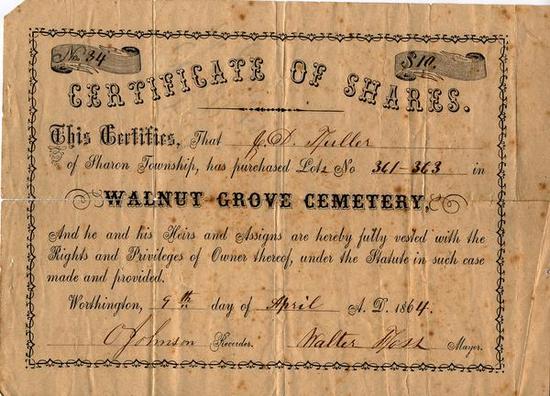 No. 34
$ 10.
CERTIFICATE OF SHARES.
This Certifies, That J. D.
of Sharon Township, has purchased Lots No 361–363 in
WALNUT GROVE CEMETERY,
And he and his Heirs and Assigns are hereby fully vested with the
Rights and Privileges of Owner thereof, under the Statute in such case
made and provided.
Worthington, 9th day of April A. D. 1864.
O Johnson Recorder. Walter Mayor.